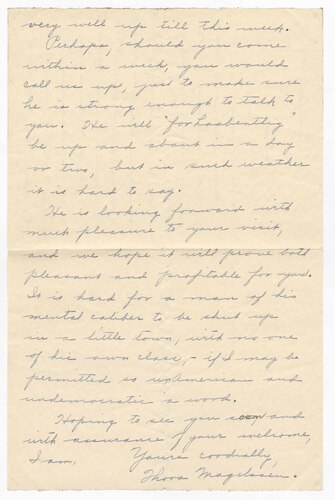 very well up till this week.
Perhaps, should you come
within a week, you would
call us up, just to make sure
he is strong enough to talk to
you. He will "forhaabentlig"
be up and about in a day
or two, but in such weather
it is hard to say.
He is looking forward with
much pleasure to your visit,
and we hope it will prove both
pleasant and profitable for you.
It is hard for a man of his
mental caliber to be shut up
in a little town, with no one
of his own class, - if I may be
permitted so unAmerican and
undemocratic a word.
Hoping to see you soon and
with assurance of your welcome,
I am, Yours cordially,
Thora Magelssen.